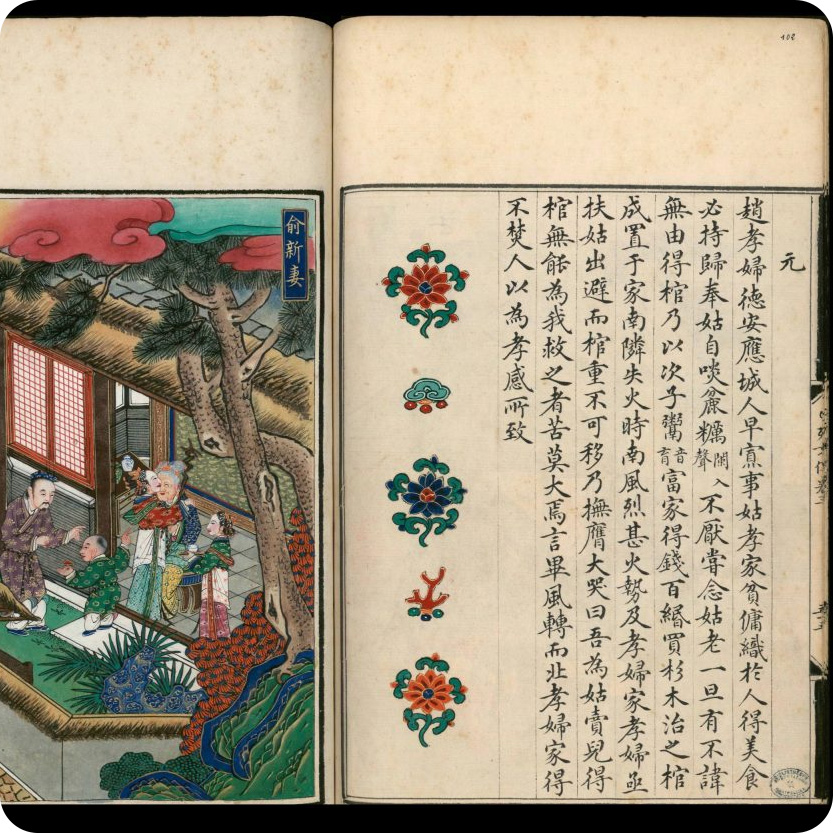 元
趙孝婦德安應城人早寡事姑孝家貧傭織於人得美食
必持歸奉姑自啖麤糲闌入聲不厭嘗念姑老一旦有不諱
無由得棺乃以次子鬻音育富家得錢百緡買杉木治之棺
成置于家南隣失火時南風烈甚火勢及孝婦家孝婦亟
扶姑出避而棺重不可移乃撫膺大哭曰吾為姑賣兒得
棺無能為我救之者苦莫大焉言畢風轉而北孝婦家得
不焚人以為孝感所致
俞新妻